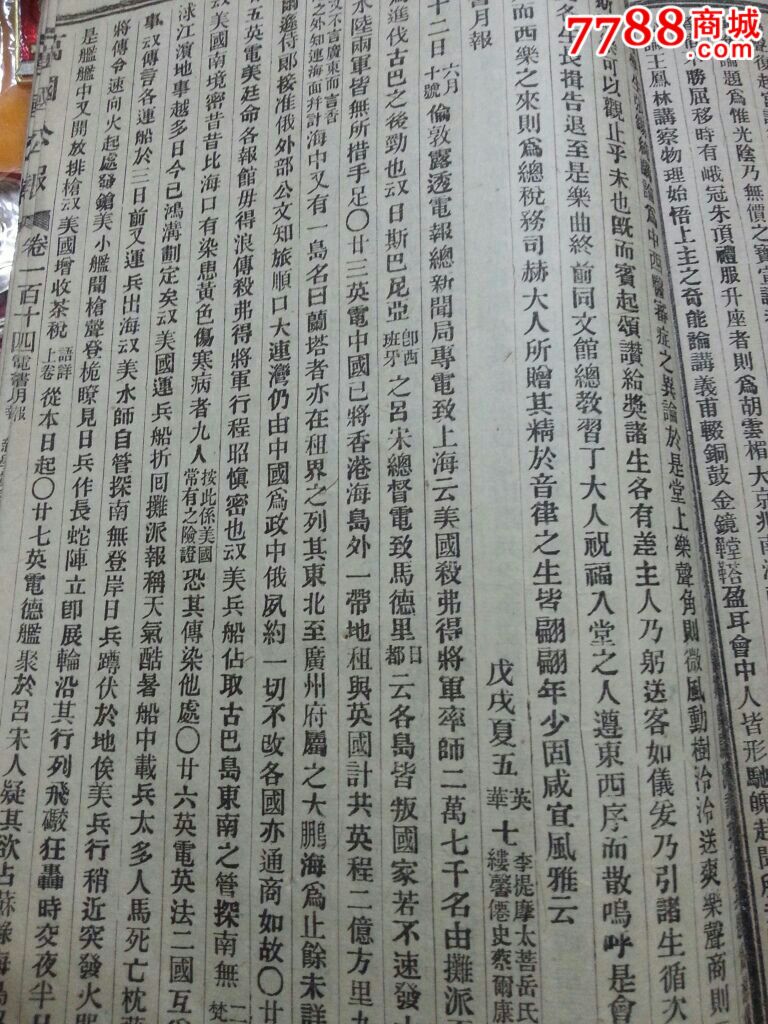 7788商城
論題爲惟光陰乃無價之寶
王鳳林講察物理始悟上主之奇能論講義甫輟銅鼓金鏡鞺鞳盈耳會中人皆形馳
不勝屈移時有峨冠朱頂禮服升座者則爲胡雲楣大京兆
爲中西醫審症之異論於是堂上樂聲角則微風動樹泠泠送爽樂聲商則
可以觀止乎未也既而賓起頌讚給獎諸生各有差主人乃躬送客如儀爰乃引諸生循次
生長揖告退至是樂曲終前同文館總教習丁大人祝福入堂之人遵東西序而散嗚呼是會
而西樂之來則爲總稅務司赫大人所贈其精於音律之生皆翩翩年少固咸宜風雅云
月報
戊戌夏五
英 李提摩太菩岳氏
華 縷馨僊史蔡爾康
十二日 六月十號 倫敦露透電報總新聞局專電致上海云美國殺弗得將軍率師二萬七千名由攤派
爲進伐古巴之後勁也㕤日斯巴尼亞 卽西班牙 之呂宋總督電致馬德里 日都 云各島皆叛國家若不速發
水陸兩軍皆無所措手足〇廿三英電中國已將香港海島外一帶地租與英國計共英程二億方里
不言廣東而言香
之外知連海面并計 海中又有一島名曰蘭塔者亦在租界之列其東北至廣州府屬之大鵬海爲止餘未詳
爾遜侍郞接准俄外部公文知旅順口大連灣仍由中國爲政中俄夙約一切不改各國亦通商如故〇廿
五英電美廷命各報館毋得浪傳殺弗得將軍行程昭愼密也㕤美兵船佔取古巴島東南之管探南無
美國南境密昔昔比海口有染患黃色傷寒病者九人 按此係美國常有之險證 恐其傳染他處〇廿六英電英法二國互
球江濱地事越多日今已鴻溝劃定矣㕤美國運兵船折回攤派報稱天氣酷暑船中載兵太多人馬死亡枕
事㕤傳言各運船於三日前又運兵出海㕤美水師自管探南無登岸日兵蹲伏於地俟美兵行稍近突發火
將傳令速向火起處發鎗美小艦聞槍聲登桅瞭見日兵作長蛇陣立卽展輪沿其行列飛礮狂轟時交夜半
是艦艦中又開放排槍㕤美國增收茶稅 語詳上卷 從本日起〇廿七英電德艦聚於呂宋人疑其欲占蘇
萬國公報 卷一百十四 電書月報